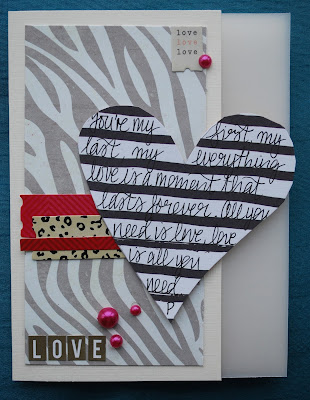 love
love
love
You're my first, my
last, my everything
love is a moment that
lasts forever. All you
need is love, love
is all you
need
P
LOVE